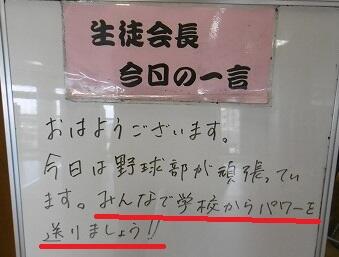 生徒会長
今日の一言
おはようございます。
今日は野球部が頑張ってい
ます。みんなで学校からパワーを
送りましょう!!